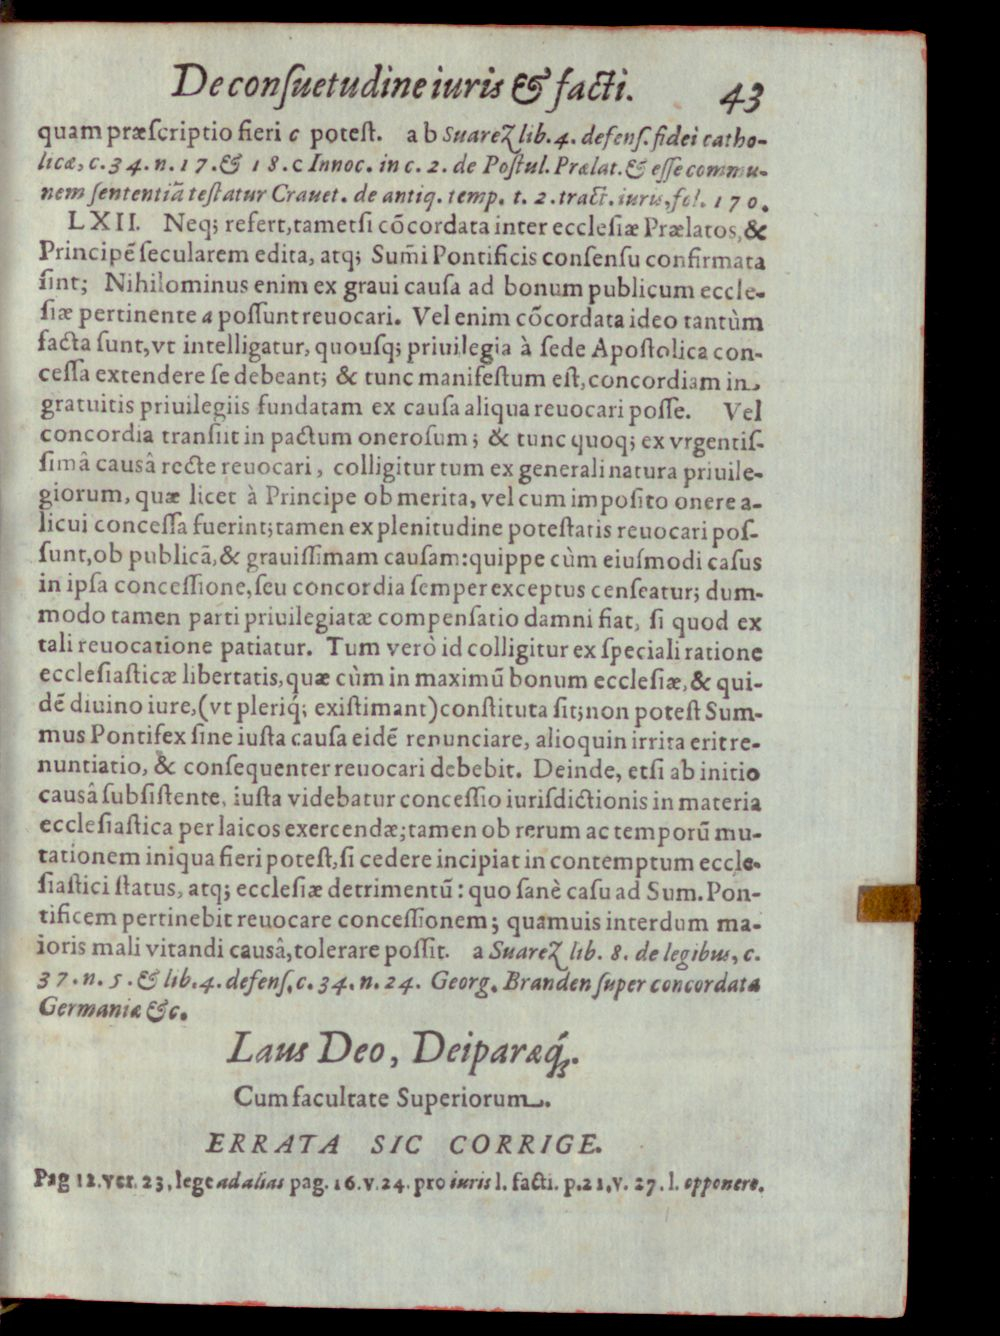 De conſuetudine iuris & facti. 43
quam præſcriptio fieri c poteſt. a b Suarez lib. 4. defenſ. fidei catho-
licæ, c. 34. n. 17. & 18. c Innoc. in c. 2. de Poſtul. Prælat. & eſſe commu-
nem ſententiã teſtatur Crauet. de antiq. temp. t. 2. tract. iuris, fol. 170.
LXII. Neq; refert, tametſi cõcordata inter eccleſiæ Prælatos, &
Principẽ ſecularem edita, atq; Sum̃i Pontificis conſenſu confirmata
ſint; Nihilominus enim ex graui cauſa ad bonum publicum eccle-
ſiæ pertinente a poſſunt reuocari. Vel enim cõcordata ideo tantùm
facta ſunt, vt intelligatur, quouſq; priuilegia à ſede Apoſtolica con-
ceſſa extendere ſe debeant; & tunc manifeſtum eſt, concordiam in
gratuitis priuilegiis fundatam ex cauſa aliqua reuocari poſſe. Vel
concordia tranſiit in pactum oneroſum; & tunc quoq; ex vrgentiſ-
ſimâ causâ recte reuocari, colligitur tum ex generali natura priuile-
giorum, quæ licet à Principe ob merita, vel cum impoſito onere a-
licui conceſſa fuerint; tamen ex plenitudine poteſtatis reuocari poſ-
ſunt, ob publicã, & grauiſſimam cauſam: quippe cùm eiuſmodi caſus
in ipſa conceſſione, ſeu concordia ſemper exceptus cenſeatur; dum-
modo tamen parti priuilegiatæ compenſatio damni fiat, ſi quod ex
tali reuocatione patiatur. Tum verò id colligitur ex ſpeciali ratione
eccleſiaſticæ libertatis, quæ cùm in maximũ bonum eccleſiæ, & qui-
dẽ diuino iure, (vt pleriq́; exiſtimant) conſtituta ſit; non poteſt Sum-
mus Pontifex ſine iuſta cauſa eidẽ renunciare, alioquin irrita erit re-
nuntiatio, & conſequenter reuocari debebit. Deinde, etſi ab initio
causâ ſubſiſtente, iuſta videbatur conceſſio iuriſdictionis in materia
eccleſiaſtica per laicos exercendæ; tamen ob rerum ac temporũ mu-
tationem iniqua fieri poteſt, ſi cedere incipiat in contemptum eccle-
ſiaſtici ſtatus, atq; eccleſiæ detrimentũ: quo ſanè caſu ad Sum. Pon-
tificem pertinebit reuocare conceſſionem; quamuis interdum ma-
ioris mali vitandi causâ, tolerare poſſit. a Suarez lib. 8. de legibus, c.
37. n. 5. & lib. 4. defenſ. c. 34. n. 24. Georg. Branden ſuper concordata
Germaniæ &c.
Laus Deo, Deiparæq́;.
Cum facultate Superiorum.
ERRATA SIC CORRIGE.
Pag 12. ver. 23, lege ad alias pag. 16. v. 24. pro iuris l. facti. p. 21, v. 27. l. opponere.